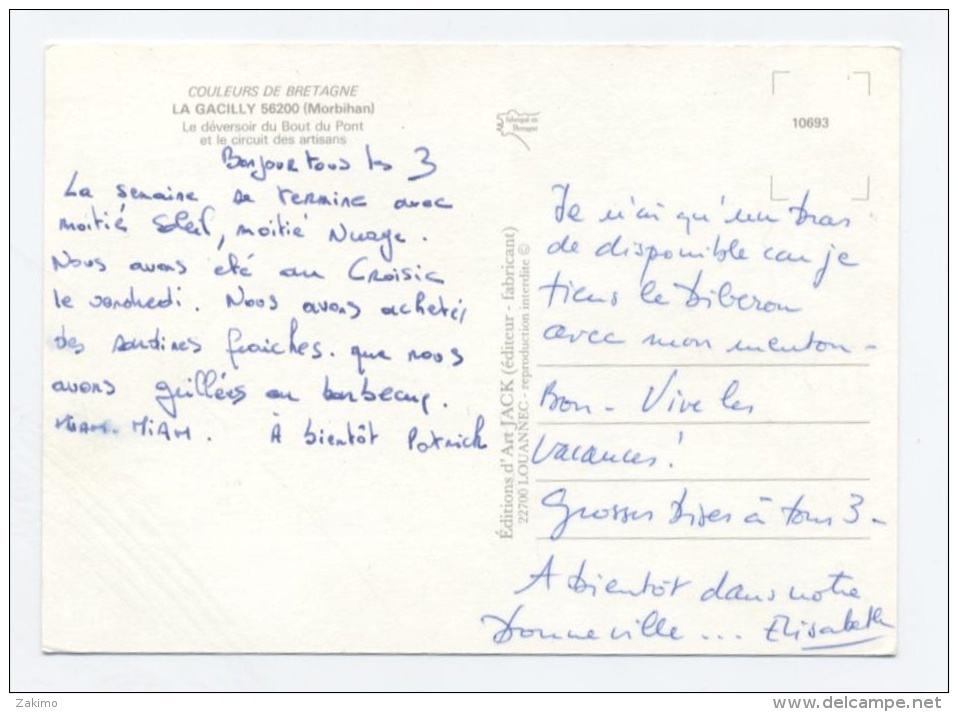 COULEURS DE BRETAGNE
LA GACILLY 56200 (Morbihan)
Le déversoir du Bout du Pont
et le circuit des artisans
Bonjour tous les 3
La semaine se termine avec
moitié Soleil, moitié Nuage.
Nous avons été au Croisic
le vendredi. Nous avons achetés
des sardines fraiches. que nous
avons grillées au barbecue.
MIAM. MIAM. A bientôt Patrick
Éditions d'Art JACK (éditeur - fabricant)
22700 LOUANNEC - reproduction interdite ©
Fabriqué en
Bretagne
10693
Je n'ai qu'un bras
de disponible car je
tiens le biberon
avec mon menton -
Bon - Vive les
vacances!
Grosses bises à tous 3 -
A bientôt dans notre
bonne ville ... Elisabeth
Zakimo
delcampe.net